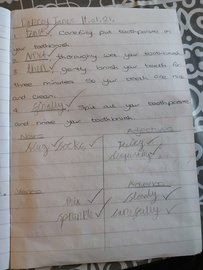 1. First, Carefully put toothpaste on
your toothbrush
2. Next, thoroughly wet your toothbrush
3. gently brush your teeth for
three minutes so your teeth are nice
and clean.
4. Finally, Spit out your toothpaste
and rinse your toothbrush.
Nouns Adjectives
Mug socks
disgusting
Verbs Adverbs
Mix slowly
sprinkle carefully